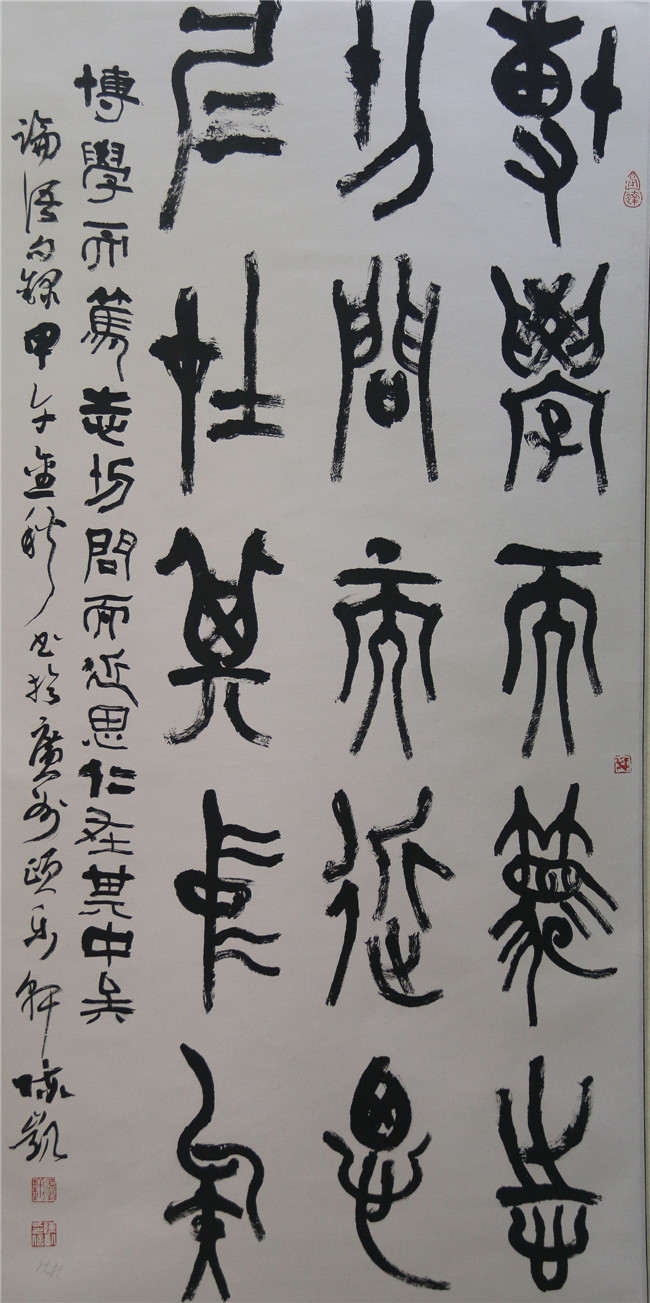 博學而篤志
切問而近思
仁在其中矣
博學而篤志切問而近思仁在其中矣
論語句錄甲午金秋书於廣州頤乐軒凱